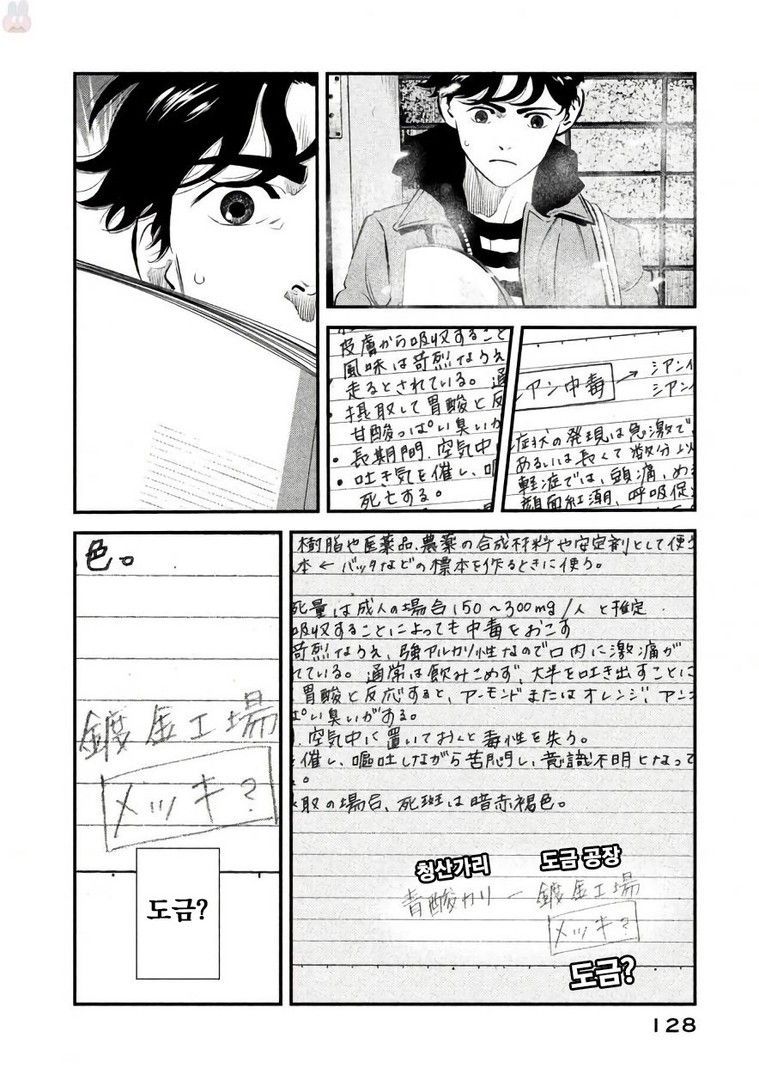 シアン中毒 → シアン
シアン
症状の発現は急激で
あるいは長くて数分以
軽症では、頭痛、め
顔面紅潮、呼吸促
皮膚から吸収すること
風味は苛烈なうえ
走るとされている。通
摂取して胃酸と反
甘酸っぱい臭いが
・長期間、空気中
・吐き気を催し、嘔
死亡する。
樹脂や医薬品、農薬の合成材料や安定剤として使う
本 ← バッタなどの標本を作るときに使う。
死量は成人の場合150~300mg/人と推定
吸収することによっても中毒をおこす
苛烈なうえ、強アルカリ性なので口内に激痛が
れている。通常は飲みこめず、大半を吐き出すことに
胃酸と反応すると、アーモンドまたはオレンジ、アン
ぱい臭いがある。
、空気中に置いておくと毒性を失う。
催し、嘔吐しながら苦悶し、意識不明となって
。
取の場合、死斑は暗赤褐色。
청산가리 도금 공장
青酸カリ ー 鍍金工場
メッキ?
도금?
色。
鍍金工場
メッキ?
도금?
128